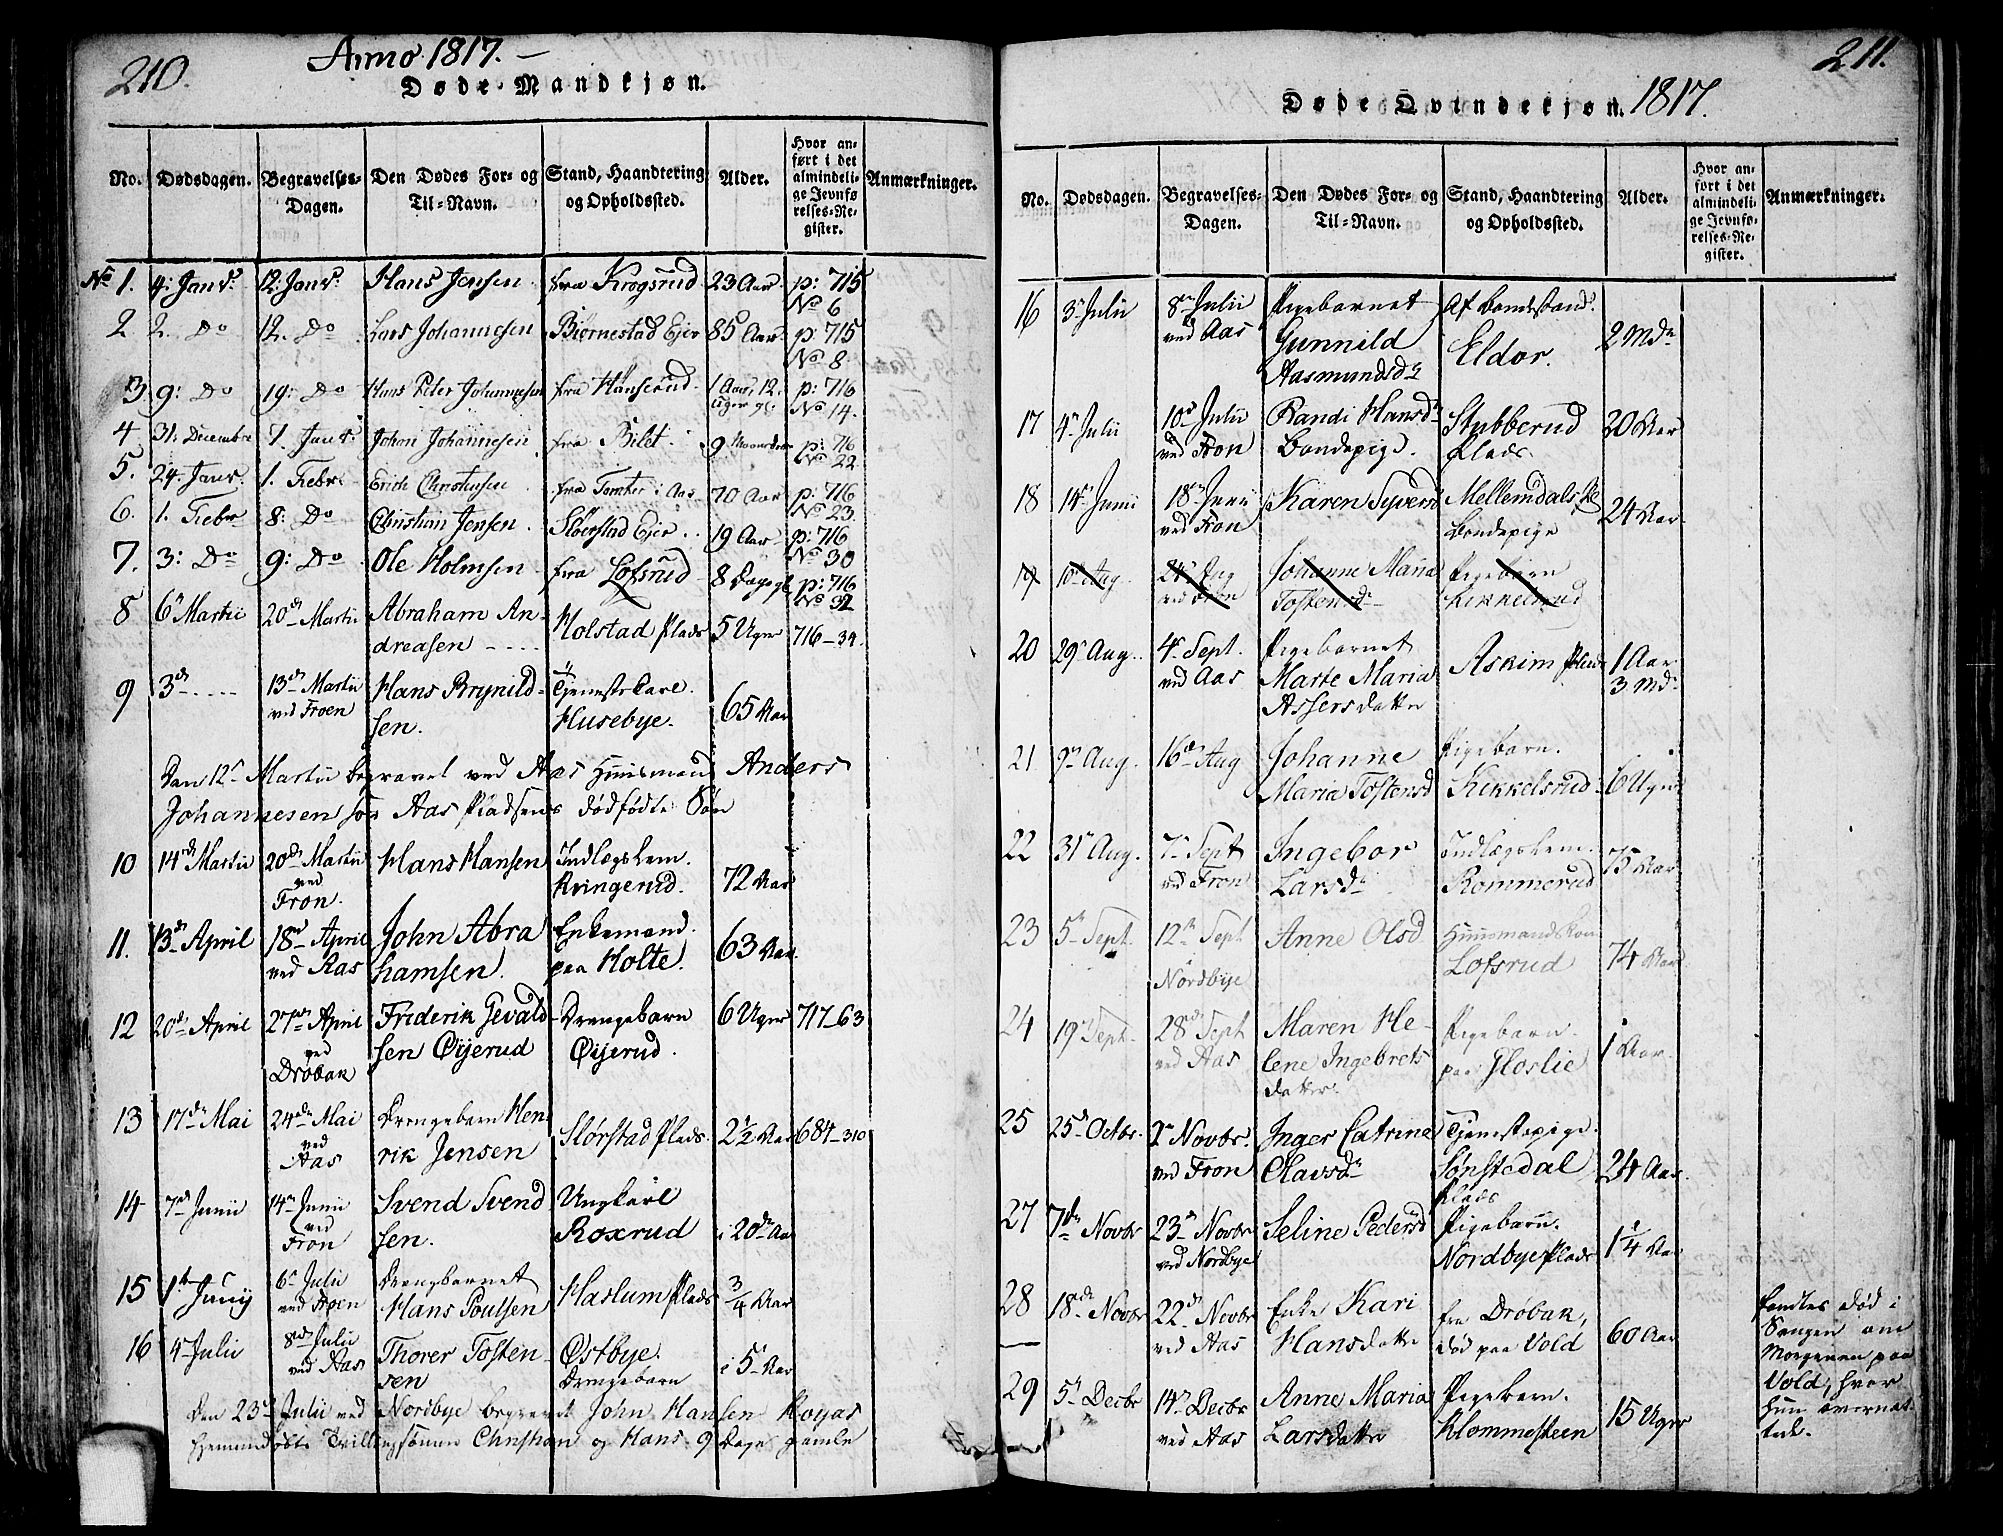 210.
Anno 1817.
Døde Mandkjøn.
No. Dødsdagen. Begravelses-Dagen. Den Dødes For- og Til-Navn. Stand, Haandtering og Opholdssted. Alder. Hvor anført i det almindelige Jevnførelses-Register. Anmærkninger.
No 1. 4: Janr. 12: Janr. Hans Jensen fra Krogsrud 23 Aar p: 715 No 6
2 2. Do 12. Do Lars Johannesen Biørnestad Ejer 85 Aar p: 715 No 8
3 9: Do 19: Do Hans Peter Johannesen fra Hanserud 1 Aar, 12. Uger gl: p: 716 No 14.
4 31: Decembr 1. Janr: Johan Johannesen fra Bilet. 9 Maaneder p: 716 No 22
5. 24. Janr. 1. Febr. Erich Christensen fra Tomter i Aas 70 Aar p: 716 No 23.
6. 1. Febr 8: Do Christian Jensen. Slørstad Ejer. 19 Aar p: 716 No 30
7. 3: Do 9: Do Ole Holmsen fra Lofsrud 8 Dage gl. p: 716 No 32
8 6 Martii 20de Martii Abraham An-
dreasen Holstad Plads 5 Uger 716-34.
9 3de 13de Martii ved Froen Hans Brynild-
sen. Tjenestekarl. Husebye. 65 Aar
Den 12te Martii begravet ved Aas Huusmand Anders
Johannesen fra Aas Pladsens dødfødte Søn
10 14de Martii 20de Martii ved Fron. Hans Hansen Indlægslem. Kringerud. 72 Aar
11. 13de April 18de April ved Aas John Abra
hamsen. Enkemand. paa Holte. 63 Aar.
12 20de April 27de April ved Drøbak Friderik Gevald-
sen Øijerud Drengebarn Øijerud. 6 Uger 717-63
13 17de Mai 24de Mai ved Aas Drengebarn Hen
rik Jensen Slørstad Plads. 2 1/2 Aar 684-310
14 7de Junii 14de Junii ved Fron Svend Svend
sen. Ungkarl Roxrud i 20de Aar
15 1ste Junij 6te Julii ved Froen Drengbarnet
Hans Poulsen Haslum Plads 3/4 Aar
16 4de Julii 8de Julii ved Aas Thorer Tosten-
sen Østbye. Drengebarn i 5te Aar
Den 23de Julii ved Nordbye begravet John Hansen
hjemmedøbte Tvillingsønner Christian og Hans 9 Dage gamle
211.
Døde Qvindekjøn. 1817.
No. Dødsdagen. Begravelses-Dagen. Den Dødes For- og Til-Navn. Stand, Haandtering og Opholdssted. Alder. Hvor anført i det almindelige Jevnførelses-Register. Anmærkninger.
16 3de Julii 8de Julii ved Aas Pigebarnet
Gunnild
Aasmundsdr Af Bondestand. Eldor. 2 Mdr
17 4de Julii 10de Julii ved Fron Randi Hansdr
Bondepige. Stubberud Plads. 20 Aar
18 14de Junii 18de Junii ved Fron Karen Syversdr Mellemdals Bondepige 24 Aar.
19 10de Aug. 24de Aug ved Fron Johanne Maria
Tostensdr Pigebarn Kikkelsrud
20 29de Aug. 4de Sept. ved Aas Pigebarnet
Marte Maria
Assersdatter Askim Plads 1 Aar 3 Mdr
21 9de Aug. 16de Aug Johanne
Maria Tostensd Pigebarn. Kikkelsrud 6 Uger
22 31te Aug. 7de Sept ved Fron Ingebor
Larsdr Indlægslem. Rommerud 75 Aar
23 5te Sept. 12te Sept Nordbye Anne Olsd Huusmandskone Lofsrud 74 Aar
24 19de Sept. 28de Sept ved Aas Maren He-
lene Ingebrets
datter. Pigebarn. paa Hoslie 1 Aar.
25 25de Octbr. 2de Novbr. ved Fron Inger Catrine
Olavsdr Tjenestepige. Sønstedal Plads 24 Aar.
27 7de Novbr 23de Novbr ved Nordbye Seline Pedersd Pigebarn. Nordbye Plads 1 1/4 Aar
28 18de Novbr 22de Novbr ved Aas Enke Kari
Hansdatter fra Drøbak, død paa Vold 60 Aar
Fandtes død i
Sengen om
Morgenen paa
Vold, hvor
hun overnat-
tede.
29 5te Decbr 14de Decbr ved Aas Anne Maria
Larsdatter Pigebarn. Klommesteen 15 Uger